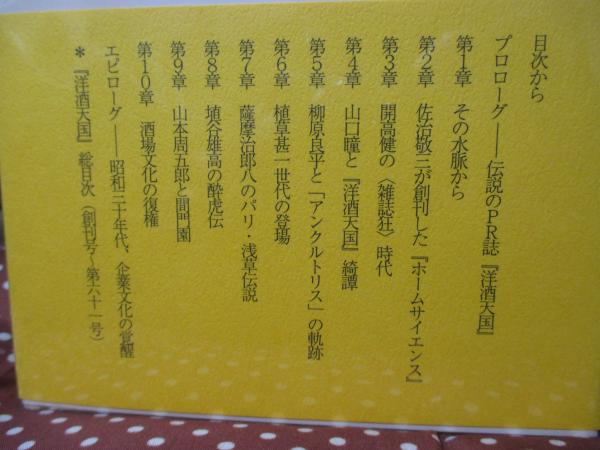 目次から
プロローグ――伝説のPR誌『洋酒天国』
第1章　その水脈から
第2章　佐治敬三が創刊した『ホームサイエンス』
第3章　開高健の〈雑誌狂〉時代
第4章　山口瞳と『洋酒天国』綺譚
第5章　柳原良平と「アンクルトリス」の軌跡
第6章　植草甚一世代の登場
第7章　薩摩治郎八のパリ・浅草伝説
第8章　埴谷雄高の酔虎伝
第9章　山本周五郎と間門園
第10章　酒場文化の復権
エピローグ――昭和三十年代、企業文化の覚醒
＊『洋酒天国』総目次（創刊号～第六十一号）